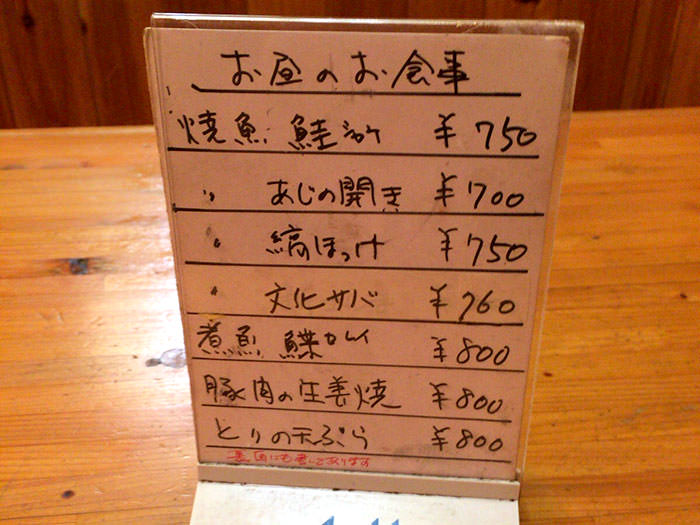 お昼のお食事
焼魚 鮭シャケ ¥750
〃 あじの開き ¥700
〃 縞ほっけ ¥750
〃 文化サバ ¥760
煮魚 鰈カレイ ¥800
豚肉の生姜焼 ¥800
とりの天ぷら ¥800
裏面にも書いてあります